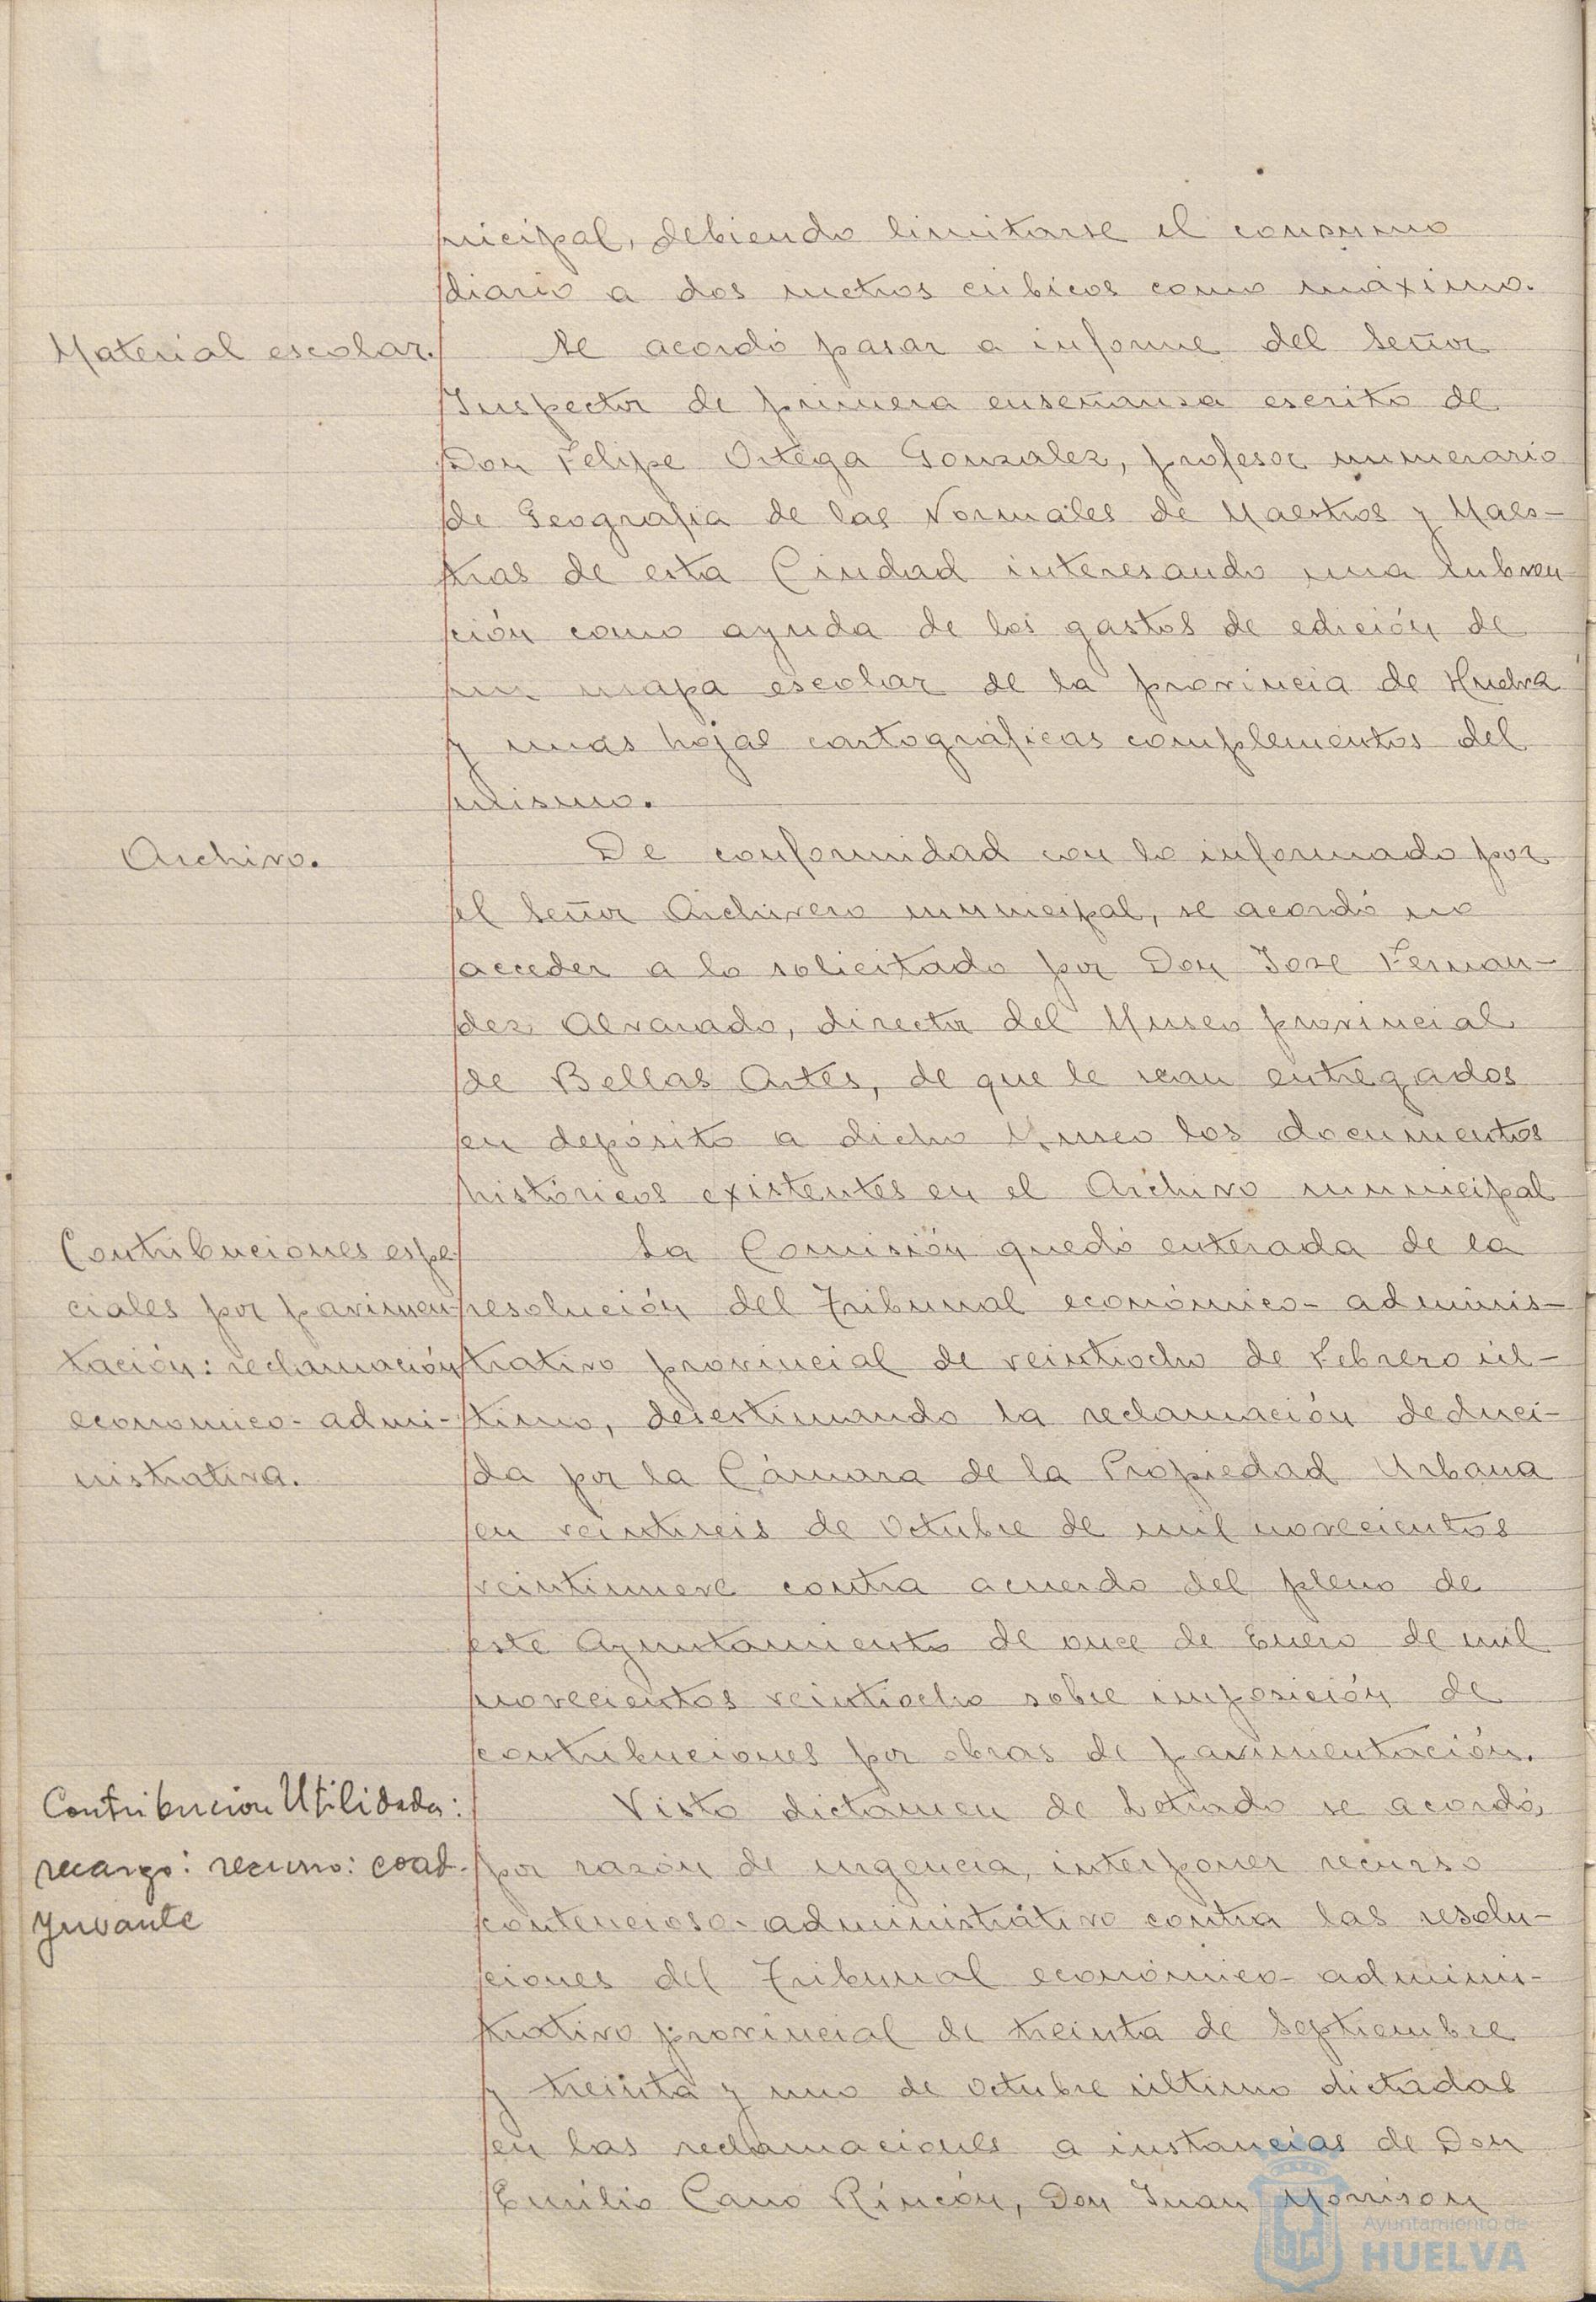 nicipal, debiendo limitarse el consumo
diario a dos metros cúbicos como máximo.
Material escolar.
Se acordó pasar a informe del Señor
Inspector de primera enseñanza escrito de
Don Felipe Ortega Gonzalez, profesor numerario
de Geografía de las Normales de Maestros y Maes-
tras de esta Ciudad interesando una subven-
ción como ayuda de los gastos de edición de
un mapa escolar de la provincia de Huelva
y unas hojas cartográficas complementos del
mismo.
Archivo.
De conformidad con lo informado por
el Señor Archivero municipal, se acordó no
acceder a lo solicitado por Don Jose Fernan-
dez Alvarado, director del Museo provincial
de Bellas Artes, de que le sean entregados
en depósito a dicho Museo los documentos
históricos existentes en el Archivo municipal
Contribuciones espe-
ciales por pavimen-
tación: reclamación
economico-admi-
nistrativa.
La Comisión quedó enterada de la
resolución del Tribunal económico-adminis-
trativo provincial de veintiocho de Febrero úl-
timo, desestimando la reclamación deduci-
da por la Cámara de la Propiedad Urbana
en veintiseis de Octubre de mil novecientos
veintinueve contra acuerdo del pleno de
este Ayuntamiento de once de Enero de mil
novecientos veintiocho sobre imposición de
contribuciones por obras de pavimentación.
Contribucion Utilidades:
recargo: recurso: coad-
yuvante
Visto dictamen de Letrado se acordó,
por razón de urgencia, interponer recurso
contencioso-administrativo contra las resolu-
ciones del Tribunal económico-adminis-
trativo provincial de treinta de Septiembre
y treinta y uno de Octubre último dictadas
en las reclamaciones a instancias de Don
Emilio Cano Rincón, Don Juan Morrison
Ayuntamiento de
HUELVA